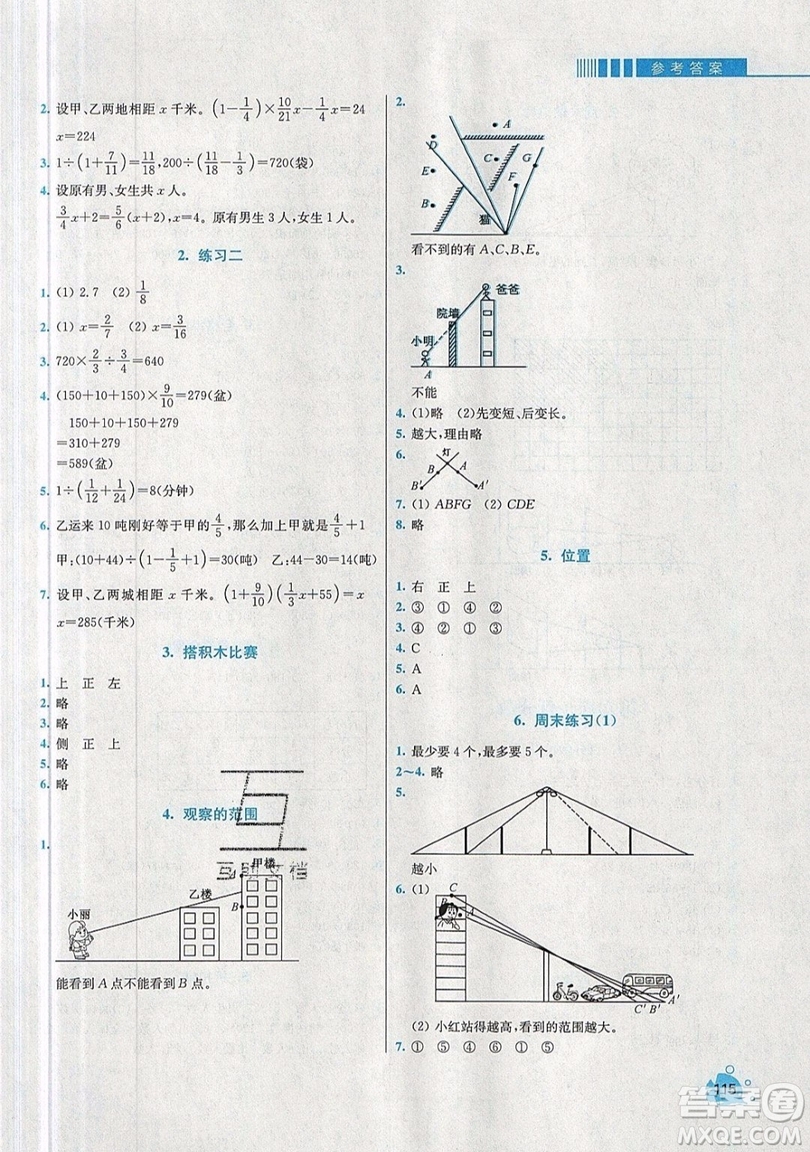 参考答案
2. 设甲、乙两地相距 x 千米。(1-1/4)×10/21x-1/4x=24
x=224
3. 1÷(1+7/11)=11/18,200÷(11/18-1/3)=720(袋)
4. 设原有男、女生共 x 人。
3/4x+2=5/6(x+2),x=4。原有男生 3 人,女生 1 人。
2. 练习二
1. (1) 2.7 (2) 1/8
2. (1) x=2/7 (2) x=3/16
3. 720×2/3÷3/4=640
4. (150+10+150)×9/10=279(盆)
150+10+150+279
=310+279
=589(盆)
5. 1÷(1/12+1/24)=8(分钟)
6. 乙运来 10 吨刚好等于甲的4/5,那么加上甲就是4/5+1
甲:(10+44)÷(1-1/5+1)=30(吨) 乙:44-30=14(吨)
7. 设甲、乙两城相距 x 千米。(1+9/10)(1/3x+55)=x
x=285(千米)
3. 搭积木比赛
1. 上 正 左
2. 略
3. 略
4. 侧 正 上
5. 略
6. 略
4. 观察的范围
1.
互
互动文档
甲楼
A
乙楼
B
小丽
能看到 A 点不能看到 B 点。
2.
A
D
C
G
E
F
B
猫
看不到的有 A、C、B、E。
3.
爸爸
院墙
小明
A
不能
4. (1)略 (2)先变短、后变长。
5. 越大,理由略
6.
灯
B A
B′ A′
7. (1) ABFG (2) CDE
8. 略
5. 位置
1. 右 正 上
2. ③ ① ④ ②
3. ④ ① ② ③
4. C
5. A
6. A
6. 周末练习(1)
1. 最少要 4 个,最多要 5 个。
2~4. 略
5.
越小
6. (1)
C
B
A
C′ B′ A′
(2) 小红站得越高,看到的范围越大。
7. ① ⑤ ④ ⑥ ① ⑤
115
答案圈
MXQE.COM